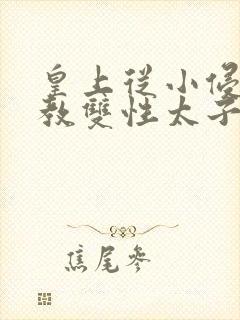 皇上從小侵
教雙性太子
焦尾參